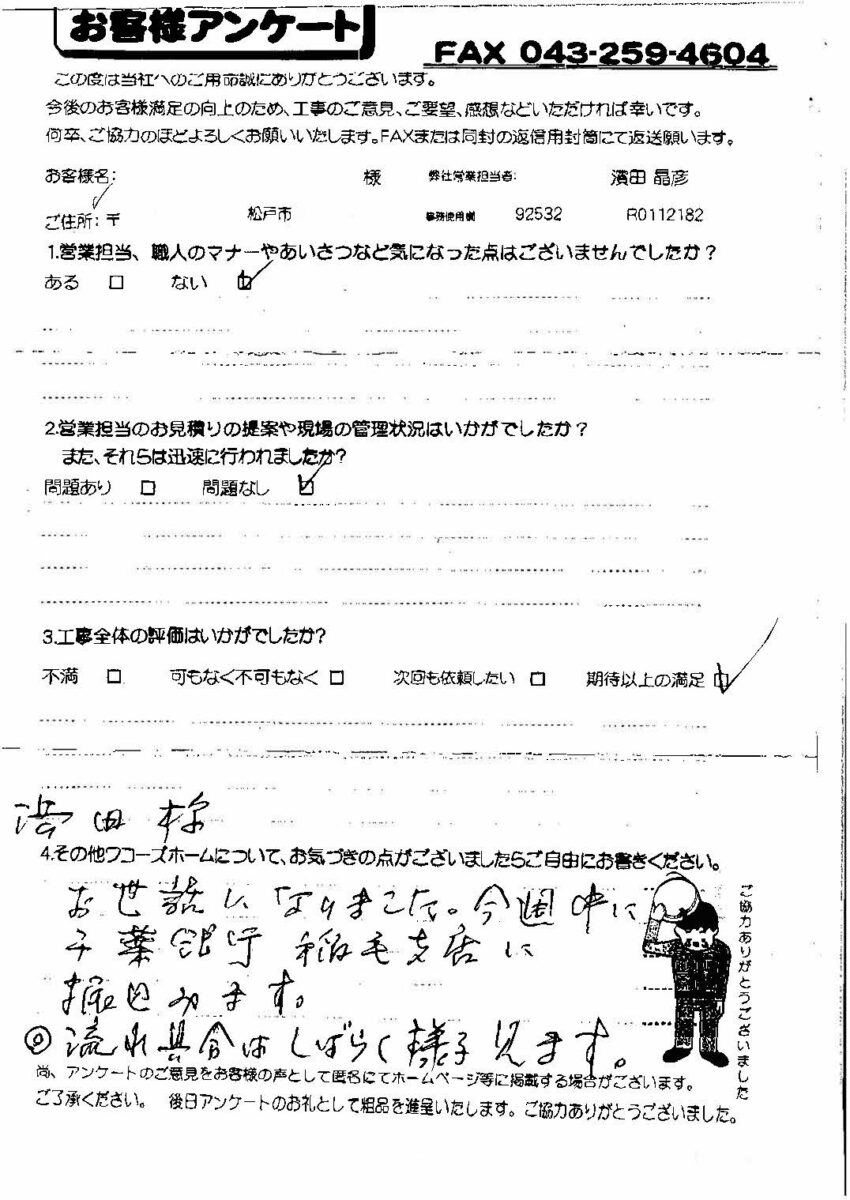 お客様アンケート
FAX 043-259-4604
この度は当社へのご用命誠にありがとうございます。
今後のお客様満足の向上のため、工事のご意見、ご要望、感想などいただければ幸いです。
何卒、ご協力のほどよろしくお願いいたします。FAXまたは同封の返信用封筒にて返送願います。
お客様名: 様 弊社営業担当者: 濱田 晶彦
ご住所:〒 松戸市 事務使用欄 92532 R0112182
1.営業担当、職人のマナーやあいさつなど気になった点はございませんでしたか?
ある □ ない ☑
2.営業担当のお見積りの提案や現場の管理状況はいかがでしたか?
また、それらは迅速に行われましたか?
問題あり □ 問題なし ☑
3.工事全体の評価はいかがでしたか?
不満 □ 可もなく不可もなく □ 次回も依頼したい □ 期待以上の満足 ☑
濱田様
4.その他ワコーズホームについて、お気づきの点がございましたらご自由にお書きください。
お世話になりました。今週中に
千葉銀行 稲毛支店に
振込みます。
◎流れ具合はしばらく様子見ます。
ご協力ありがとうございました
尚、アンケートのご意見をお客様の声として匿名にてホームページ等に掲載する場合がございます。
ご了承ください。 後日アンケートのお礼として粗品を進呈いたします。ご協力ありがとうございました。